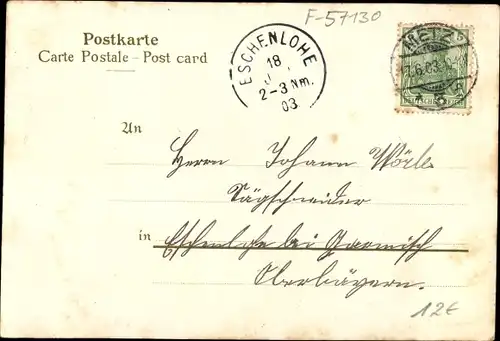 F-57130
Postkarte
Carte Postale - Post card
ESCHENLOHE
18
2-3 Nm.
03
METZ
6.03
DEUTSCHES REICH
An
Herrn Johann Wörle
Sägschneider
in Eschenlohe bei Garmisch
Oberbayern.
12€